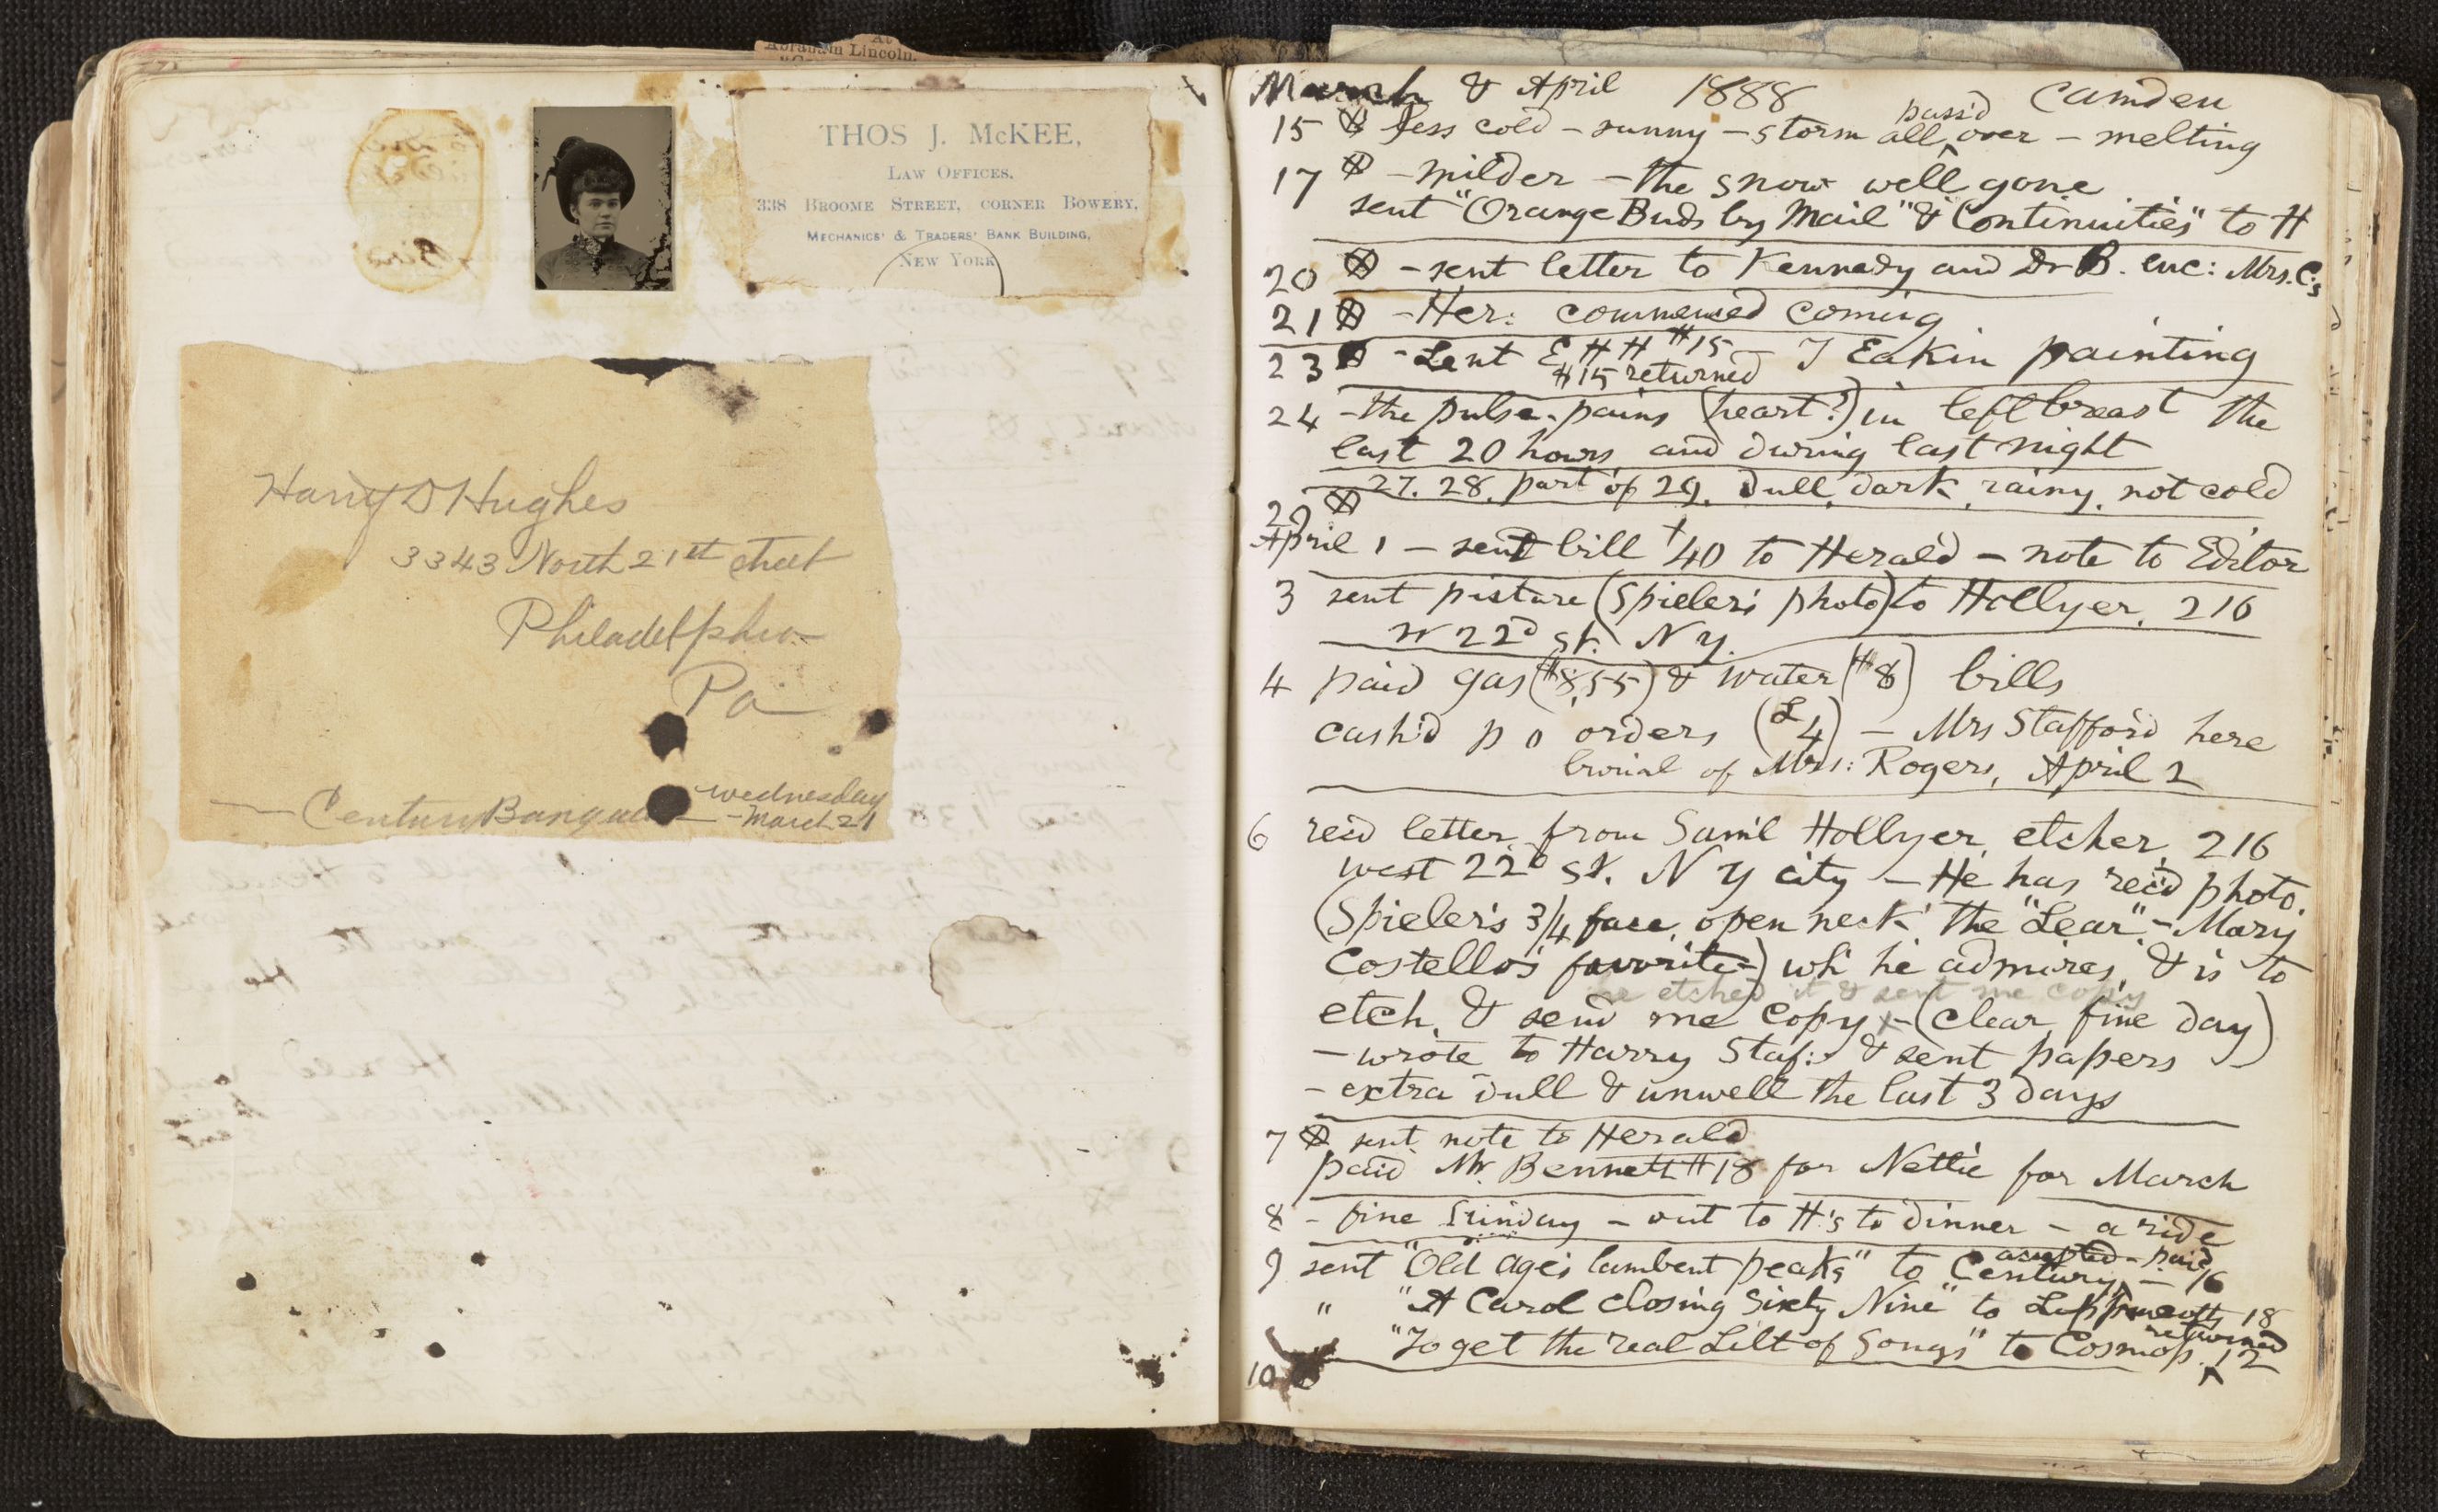 At
Abraham Lincoln.
THOS J. McKEE,
LAW OFFICES.
338 BROOME STREET, CORNER BOWERY,
MECHANICS' & TRADERS' BANK BUILDING,
NEW YORK
Harry D Hughes
3343 North 21st street
Philadelphia
Pa
— Century Banquet — wednesday
— March 21
March & April 1888 Camden
15 less cold – sunny – storm all pass'd over – melting
17 – milder – the snow well gone
sent "Orange Buds by Mail" & "Continuities" to H
20 – sent letter to Kennedy and Dr B. enc: Mrs. C's
21 – Her: commenced coming
23 – sent E H H #15 – T Eakin painting
#15 returned
24 – the pulse-pains (heart?) in left breast the
last 20 hours and during last night
27. 28. part of 29. dull, dark, rainy, not cold
29
April 1 – sent bill 40 to Herald – note to Editor
3 sent picture (Spieler's photo) to Hollyer, 216
W 22d st. N Y.
4 paid gas ($8,55) & water ($8) bills
cash'd p o orders (£4) – Mrs Stafford here
burial of Mrs: Rogers, April 2
6 rec'd letter from Sam'l Hollyer, etcher, 216
west 22d st. N Y city – He has rec'd photo.
(Spieler's 3/4 face, open neck the "Lear" – Mary
Costello's favorite –) wh' he admires, & is to
he etched it & sent me copy
etch, & send me copy – (clear fine day)
– wrote to Harry Staf: & sent papers
– extra dull & unwell the last 3 days
7 sent note to Herald
paid Mr. Bennett $18 for Nettie for March
8 – fine Sunday – out to H's to dinner – a ride
accepted – paid
9 sent "Old age's lambent peaks" to Century – 16
" "A Carol closing Sixty Nine" to Lippincott's 18
returned
"To get the real Lilt of Songs" to Cosmop. 12
10